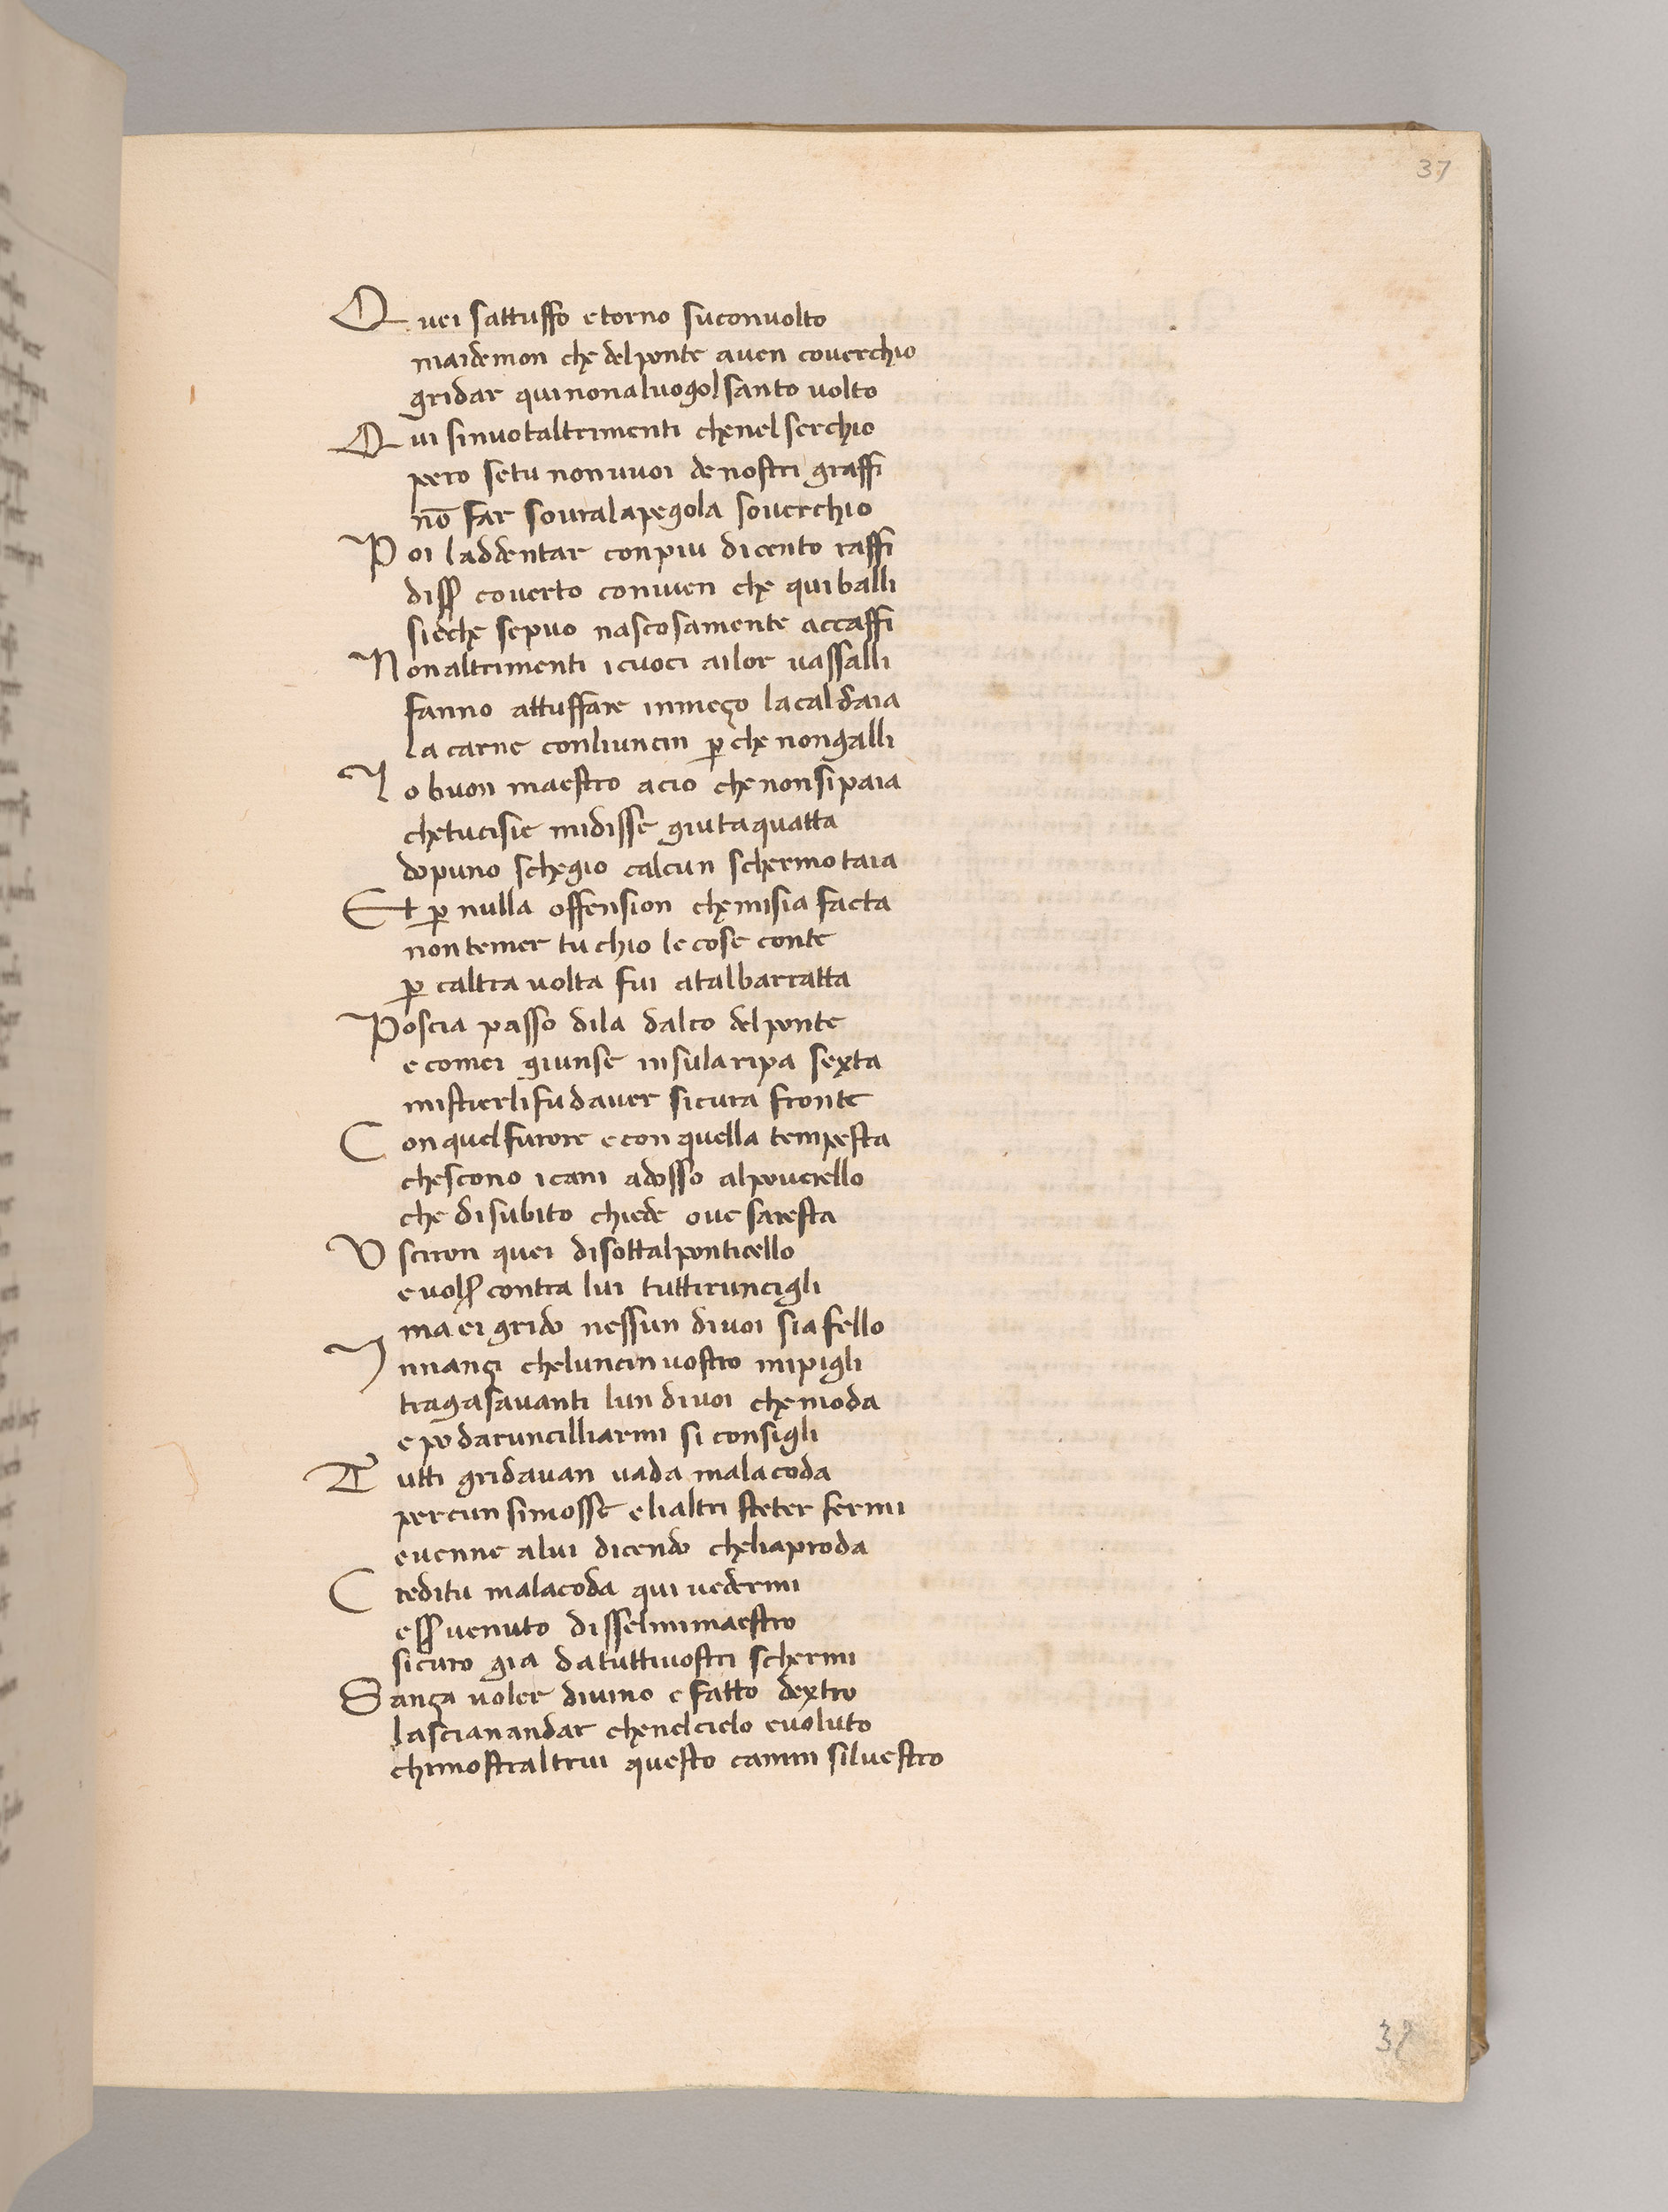 37
Quei sattuffo etorno suconuolto
maidemon che delponte auen couerchio
gridar quinonaluogol santo uolto
Qui sinuotaltrimenti chenel serchio
pero setu nonuuoi denostri graffi
nō far souralapegola souerchio
Poi laddentar conpiu dicento raffi
diss couerto conuien che quiballi
sieche sepuo nascosamente accaffi
Nonaltrimenti icuoci ailor uassalli
fanno attuffare inmeço lacaldaia
la carne conliuncin ꝑche nongalli
Io buon maestro acio chenonsipaia
chetucisie midisse giutaquatta
dopuno schegio calcun schermotaia
Et ꝑ nulla offension chemisia facta
nontemer tuchio lecose conte
ꝑ caltra uolta fui atalbarratta
Poscia passo dila dalco delponte
ecomei giunse insularipa sexta
mistierlifudauer sicura fronte
Conquelfurore econquella tempesta
chescono icani adosso alpouerello
che disubito chiede oue saresta
Usciron quei disottalponticello
euols contra lui tuttiruncigli
ma ei grido nessun diuoi siafello
Innançi cheluncinuostro mipigli
tragasauanti lun diuoi chemoda
epodaruncilliarmi si consigli
Tutti gridauan uada malacoda
percunsimosse elialtri steter fermi
euenne alui dicendo cheliaproda
Creditu malacoda qui uedermi
ess uenuto disselmimaestro
sicuro gia datuttiuostri schermi
Sança uoler diuino efatto dextro
lascianandar chenelcielo euoluto
chimostraltrui questo camin siluestro